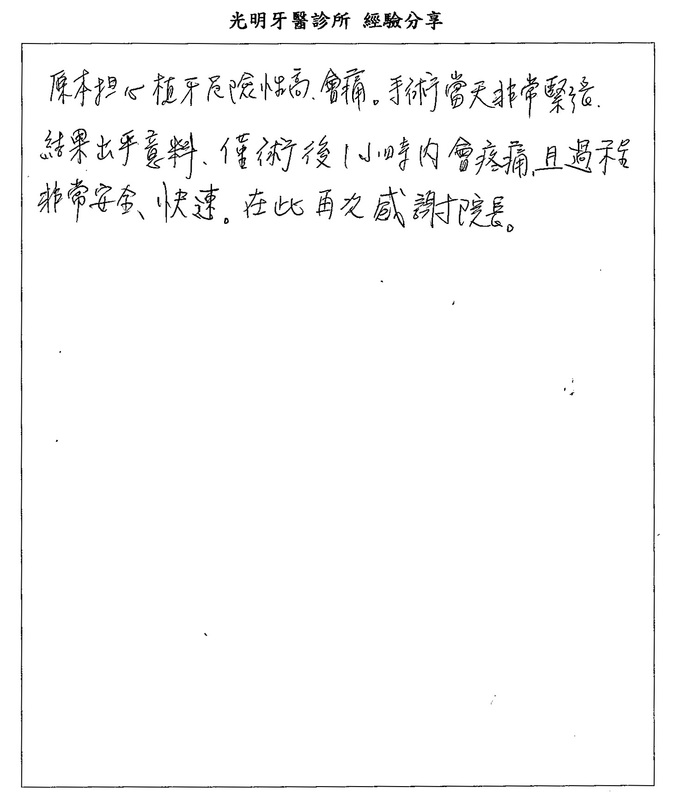 光明牙醫診所 經驗分享
原本担心植牙危險性高、會痛。手術當天非常緊張、
結果出乎意料、僅術後1小時內會疼痛、且過程
非常安全、快速。在此再次感謝院長。